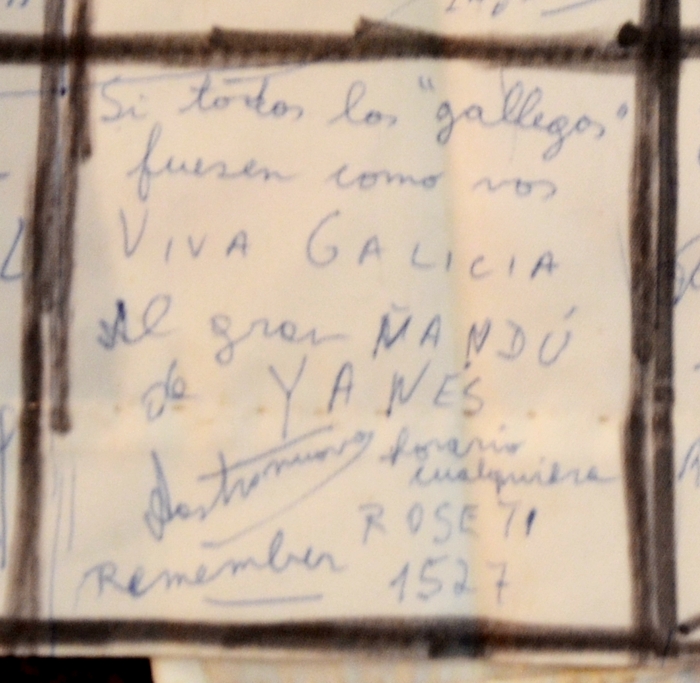 Si todos los "gallegos"
fuesen como vos
VIVA GALICIA
Al gran ÑANDÚ
de YANES
horario
cualquiera
ROSETI
Remember 1527